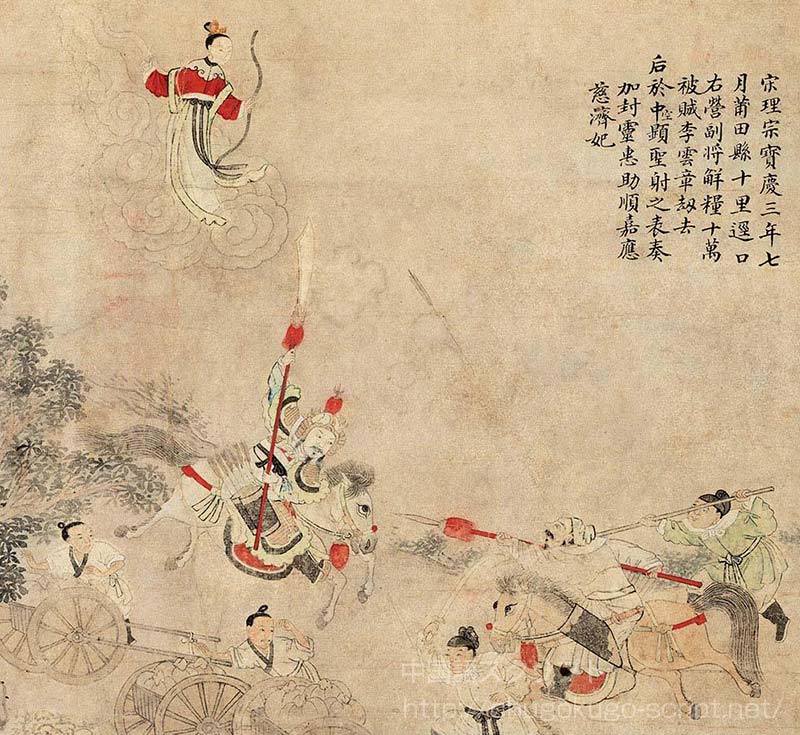 宋理宗寶慶三年七
月莆田縣十里逕口
右營副將觧糧十萬
被賊李雲章刼去
后於中空顯聖射之表奏
加封靈惠助順嘉應
慈濟妃
中国語スクリプト
http://chugokugo-script.net/